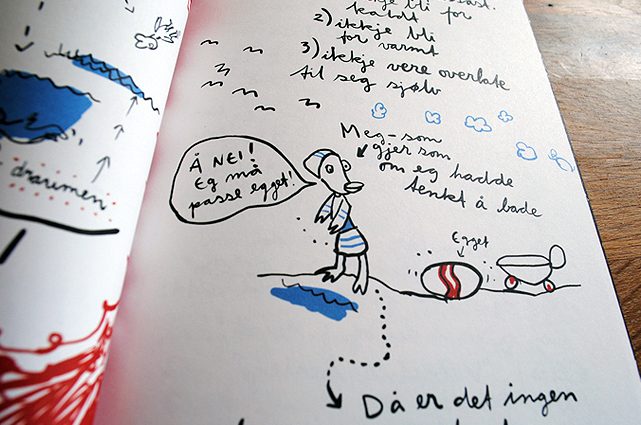 bli for
kaldt
2) ikkje bli
for varmt
3) ikkje vere overlate
til seg sjølv
Meg-som
gjer som
om eg hadde
tenkt å bade
Å NEI!
Eg må
passe egget!
Egget
draumen
Då er det ingen